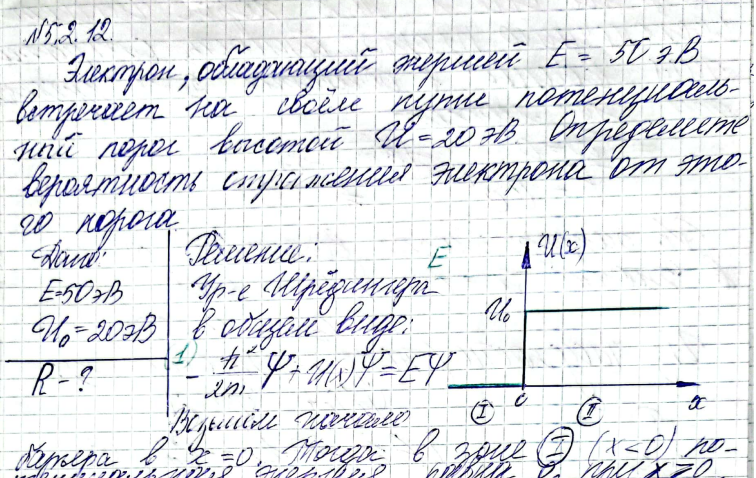 №5.2.12.
Электрон, обладающий энергией E = 50 эВ
встречает на своём пути потенциаль-
ный порог высотой U = 20 эВ. Определите
вероятность отражения электрона от это-
го порога
Дано:
E=50эВ
U₀ = 20эВ
R - ?
Решение:
Ур-е Шрёдингера
в общем виде:
1)
- ħ²/2m Ψ + U(x)Ψ = EΨ
Возьмём начало
E
U(x)
U₀
I
0
II
x
барьера в x = 0. Тогда в зоне I (x<0) по-
тенциальная энергия равна 0, при x>0